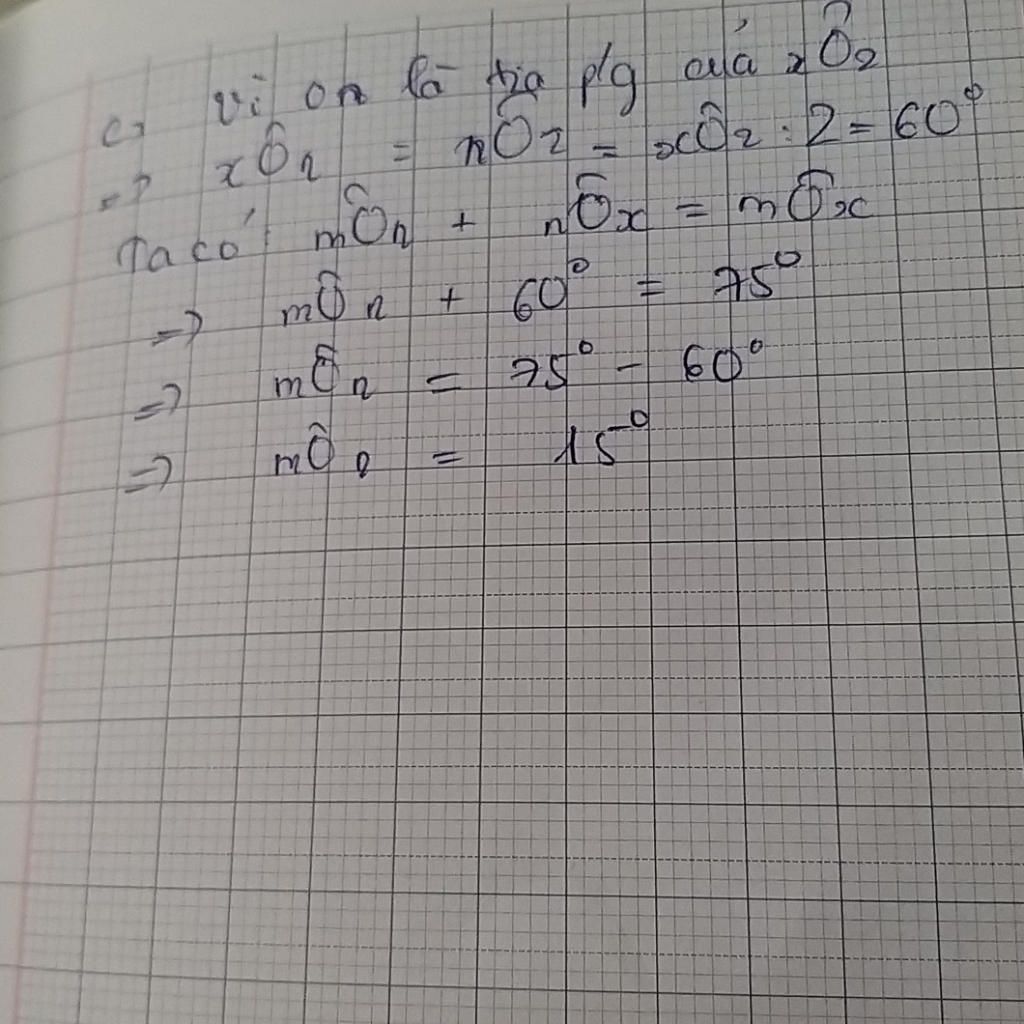 c, Vì On là tia p/g của xÔz
=> xÔn = nÔz = xÔz : 2 = 60°
Ta có: mÔn + nÔx = mÔx
=> mÔn + 60° = 75°
=> mÔn = 75° - 60°
=> mÔn = 15°